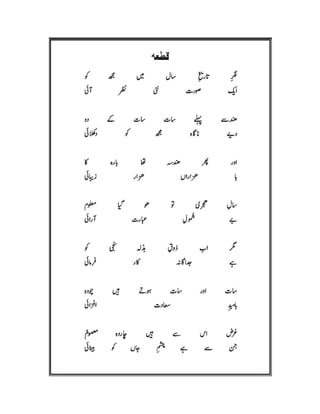 قطعہ
فکرِ تاریخِ سال میں مجھ کو
ایک صورت نئی نظر آئی
ہندسے پہلے سات سات کے دو
دیے ناگاہ مجھ کو دکھلائی
اور پھر ہندسہ تھا بارہ کا
با ہزاراں ہزار زیبائی
سالِ ہجری تو ہو گیا معلوم
بے شمولِ عبارت آرائی
مگر اب ذوقِ بذلہ سنجی کو
ہے جداگانہ کار فرمائی
سات اور سات ہوتے ہیں چودہ
بامیدِ سعادت افزائی
غرض اس سے ہیں چاردہ معصوم
جن سے ہے چشمِ جاں کو بینائی